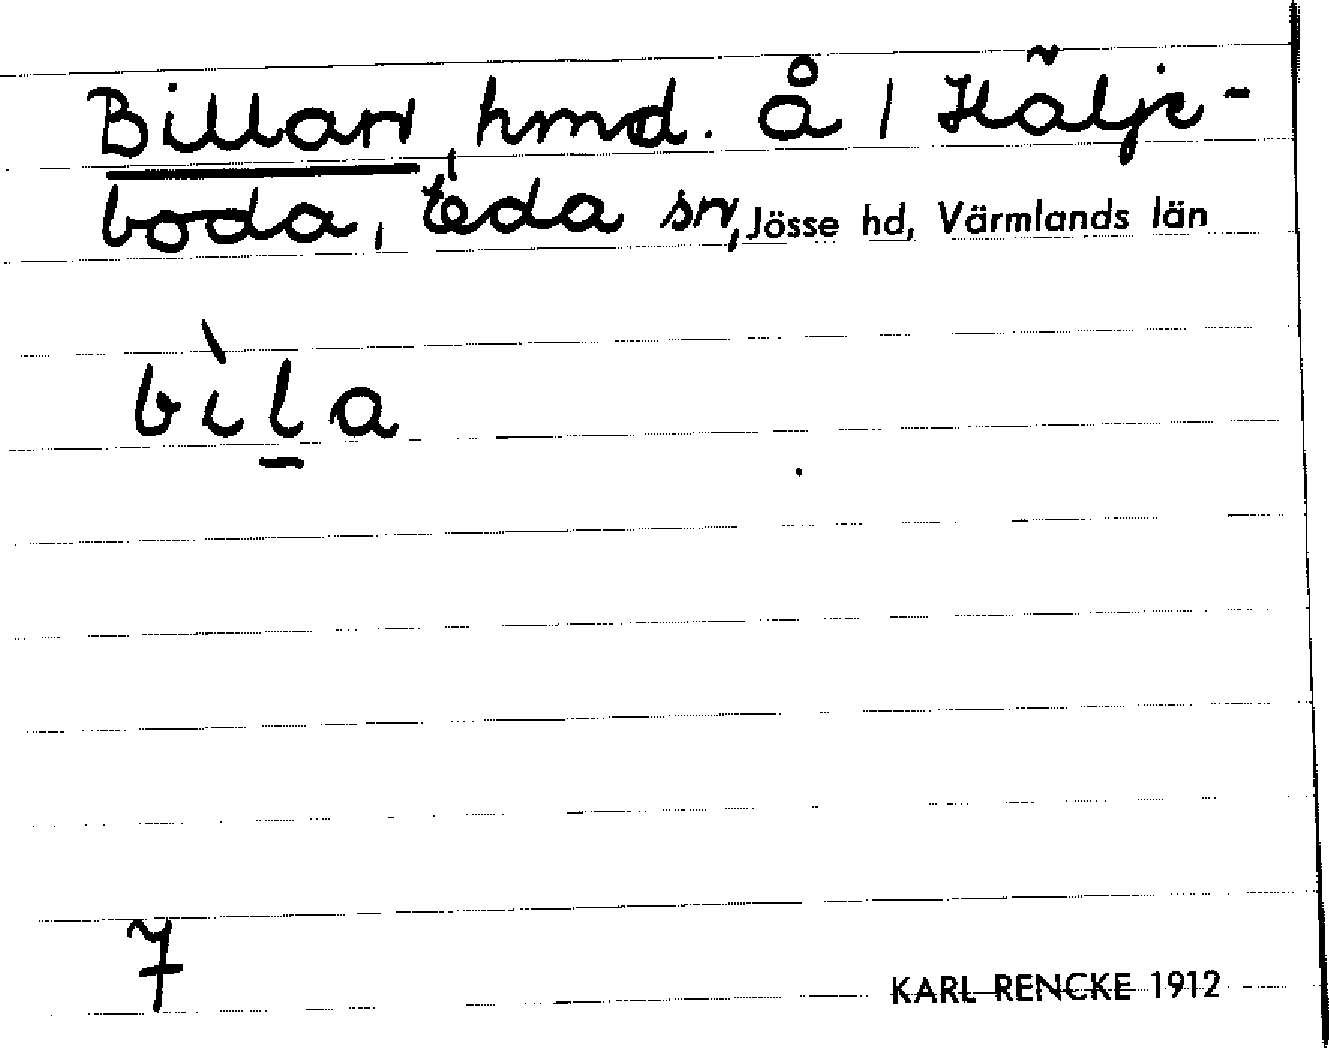 Billan, hmd. å 1 Hälje-
boda, Eda sn, Jösse hd, Värmlands län
bìla
7
KARL RENCKE 1912